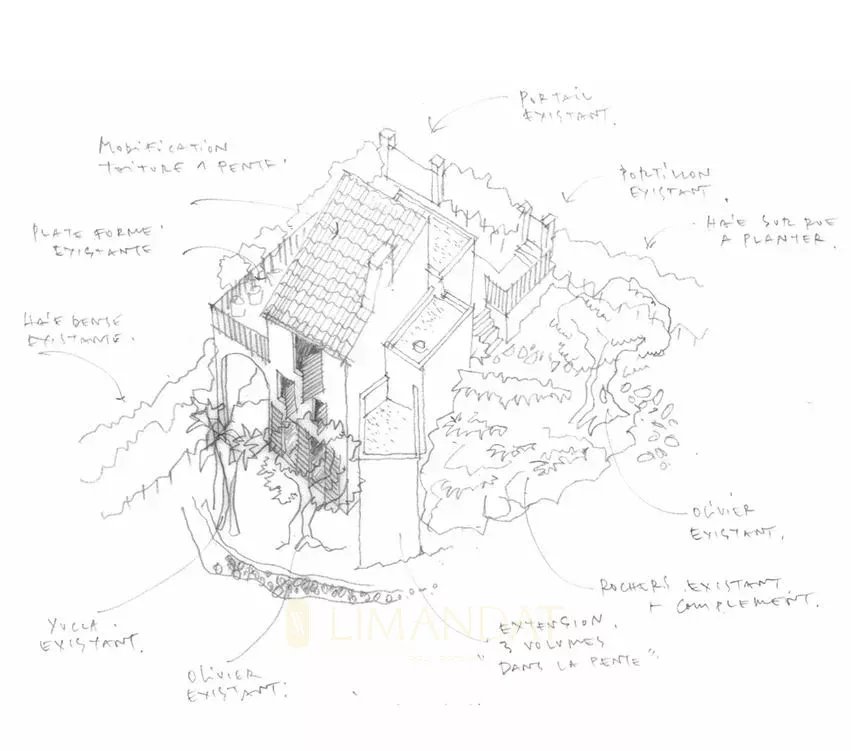 PORTAIL
EXISTANT.
MODIFICATION
TOITURE 1 PENTE.
PORTILLON
EXISTANT
HAIE SUR RUE
A PLANTER.
PLATE FORME
EXISTANTE
HAIE DENSE
EXISTANTE.
OLIVIER
EXISTANT.
ROCHERS EXISTANT
+ COMPLEMENT.
YUCCA.
EXISTANT.
LIMANDAT
EXTENSION.
3 VOLUMES
"DANS LA PENTE".
OLIVIER
EXISTANT.